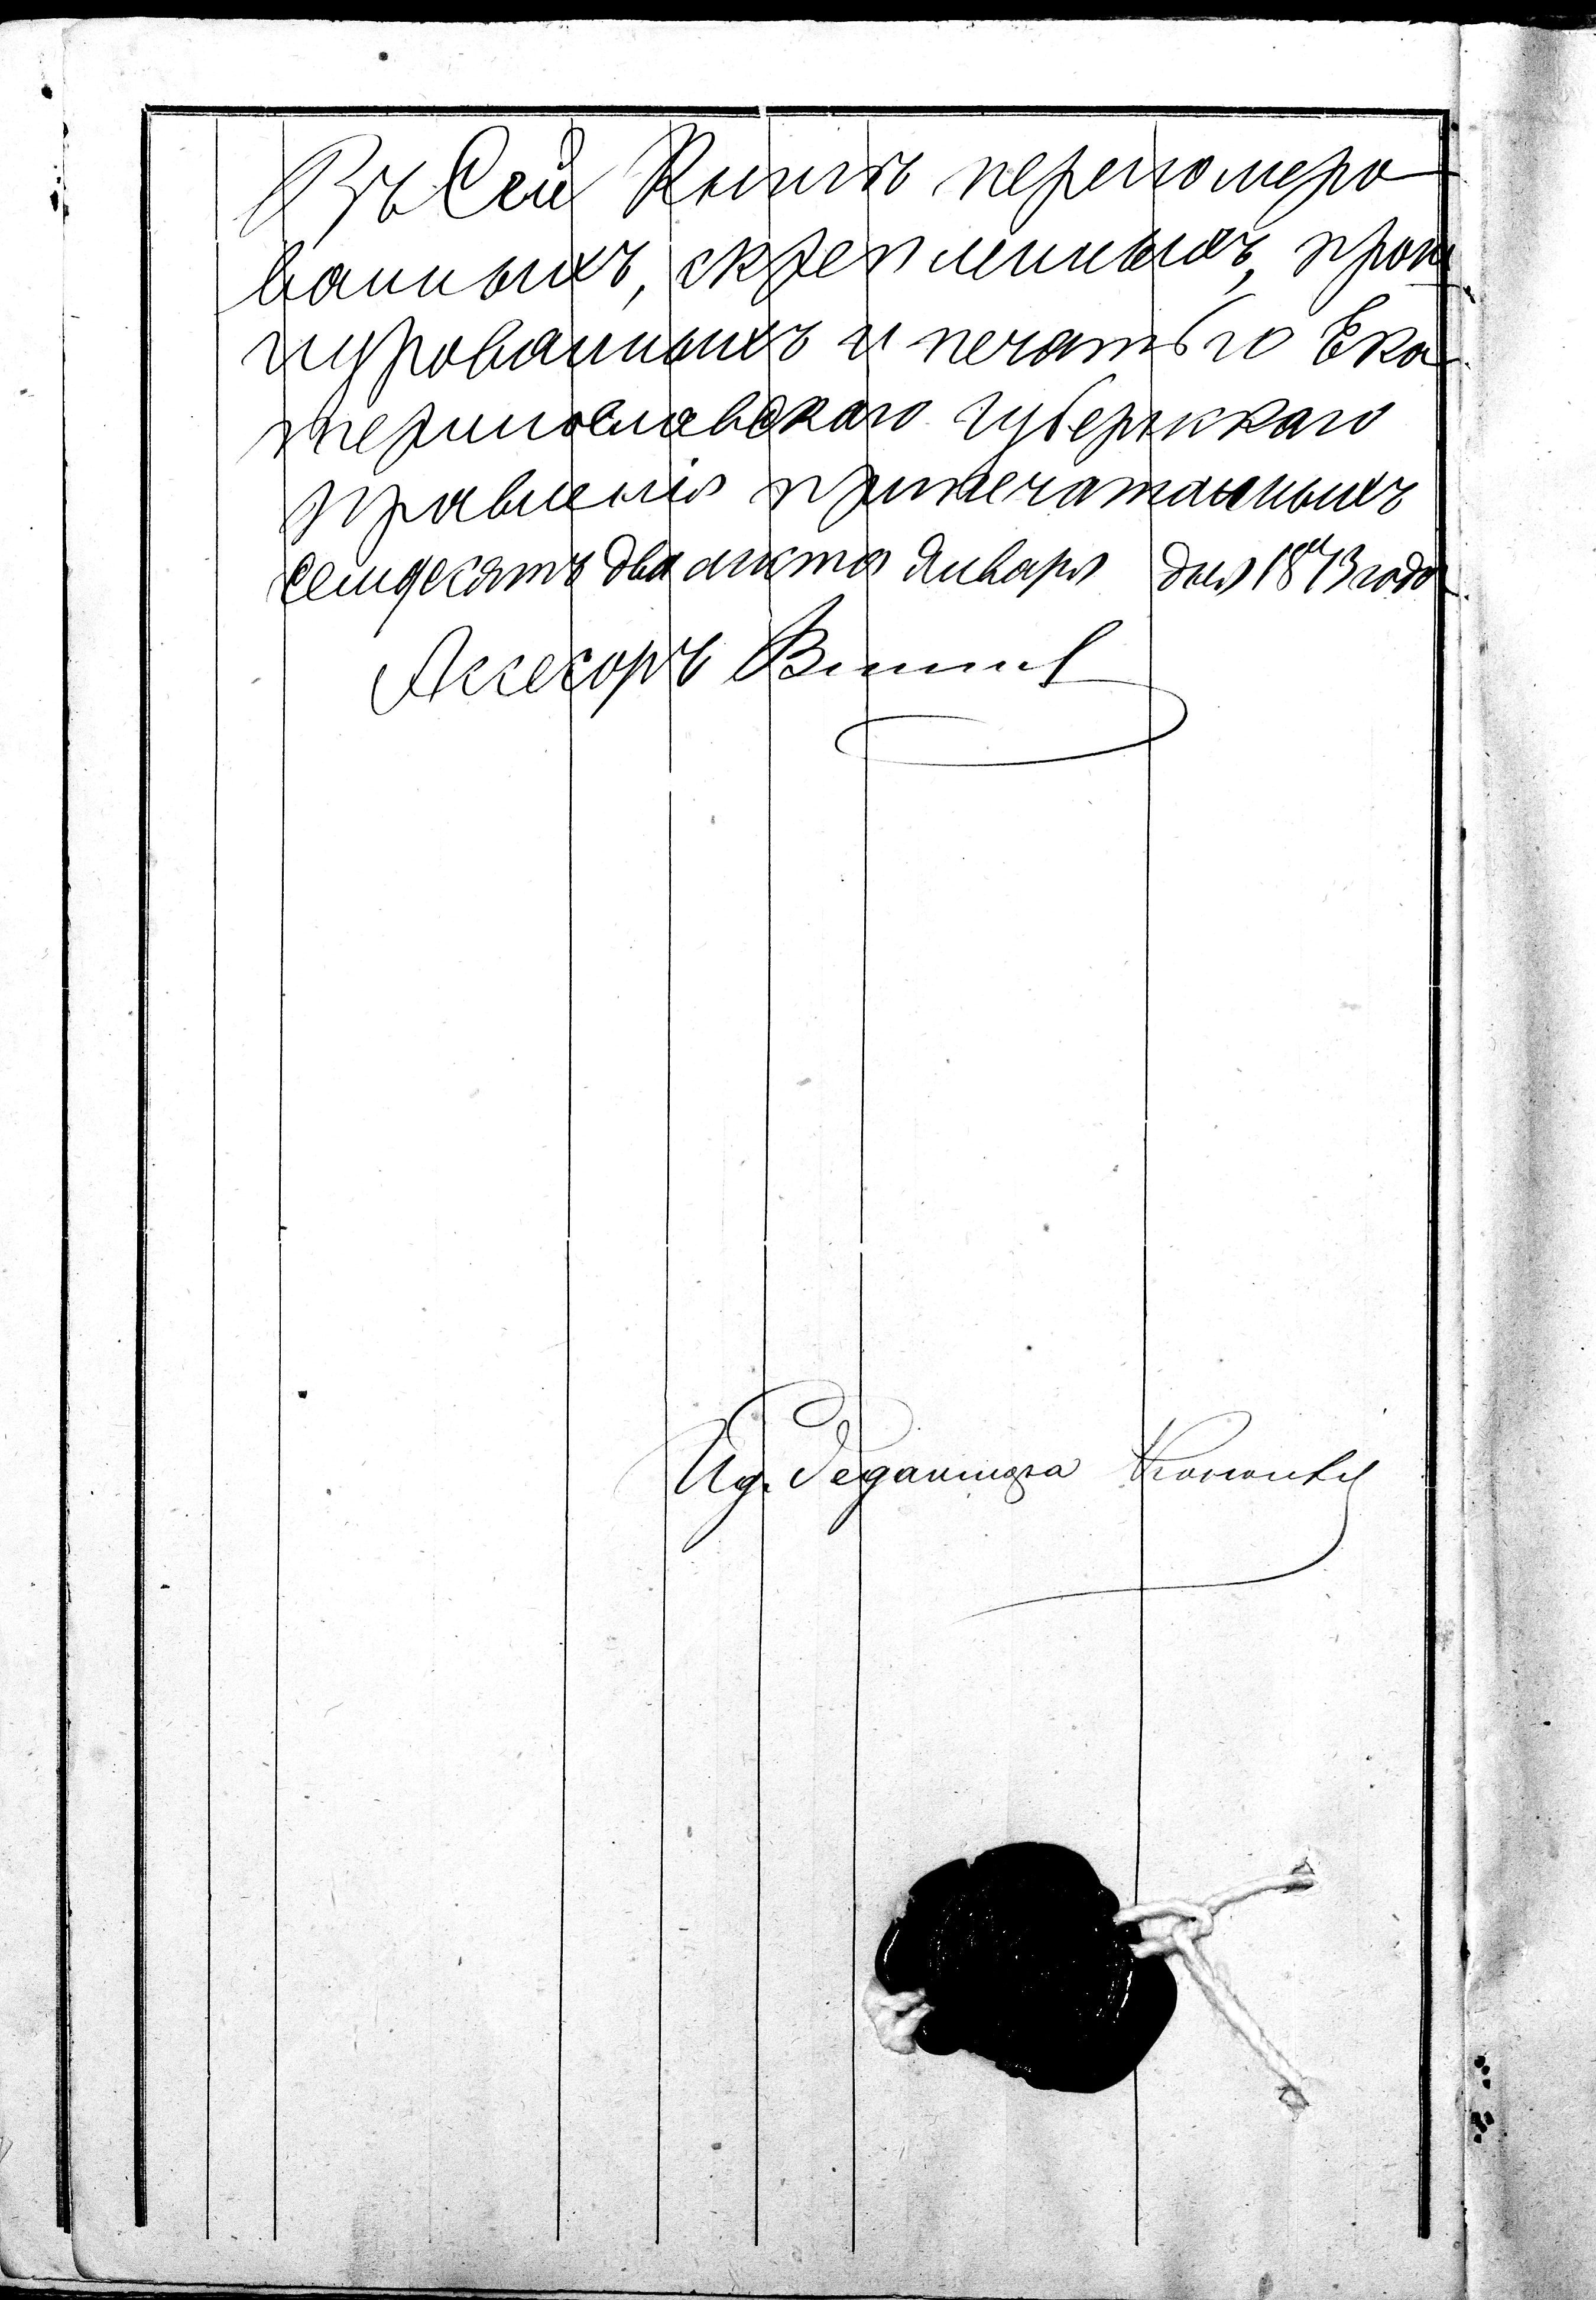 Въ Сей Книгѣ перекомеро
ванныхъ, скрепленныхъ, прош
нурованныхъ и печатью Ека
теринославскаго Губернскаго
правленія припечатанныхъ
семдесятъ два листа Января дня 1873 года
Ассесоръ
И. д. Редактора